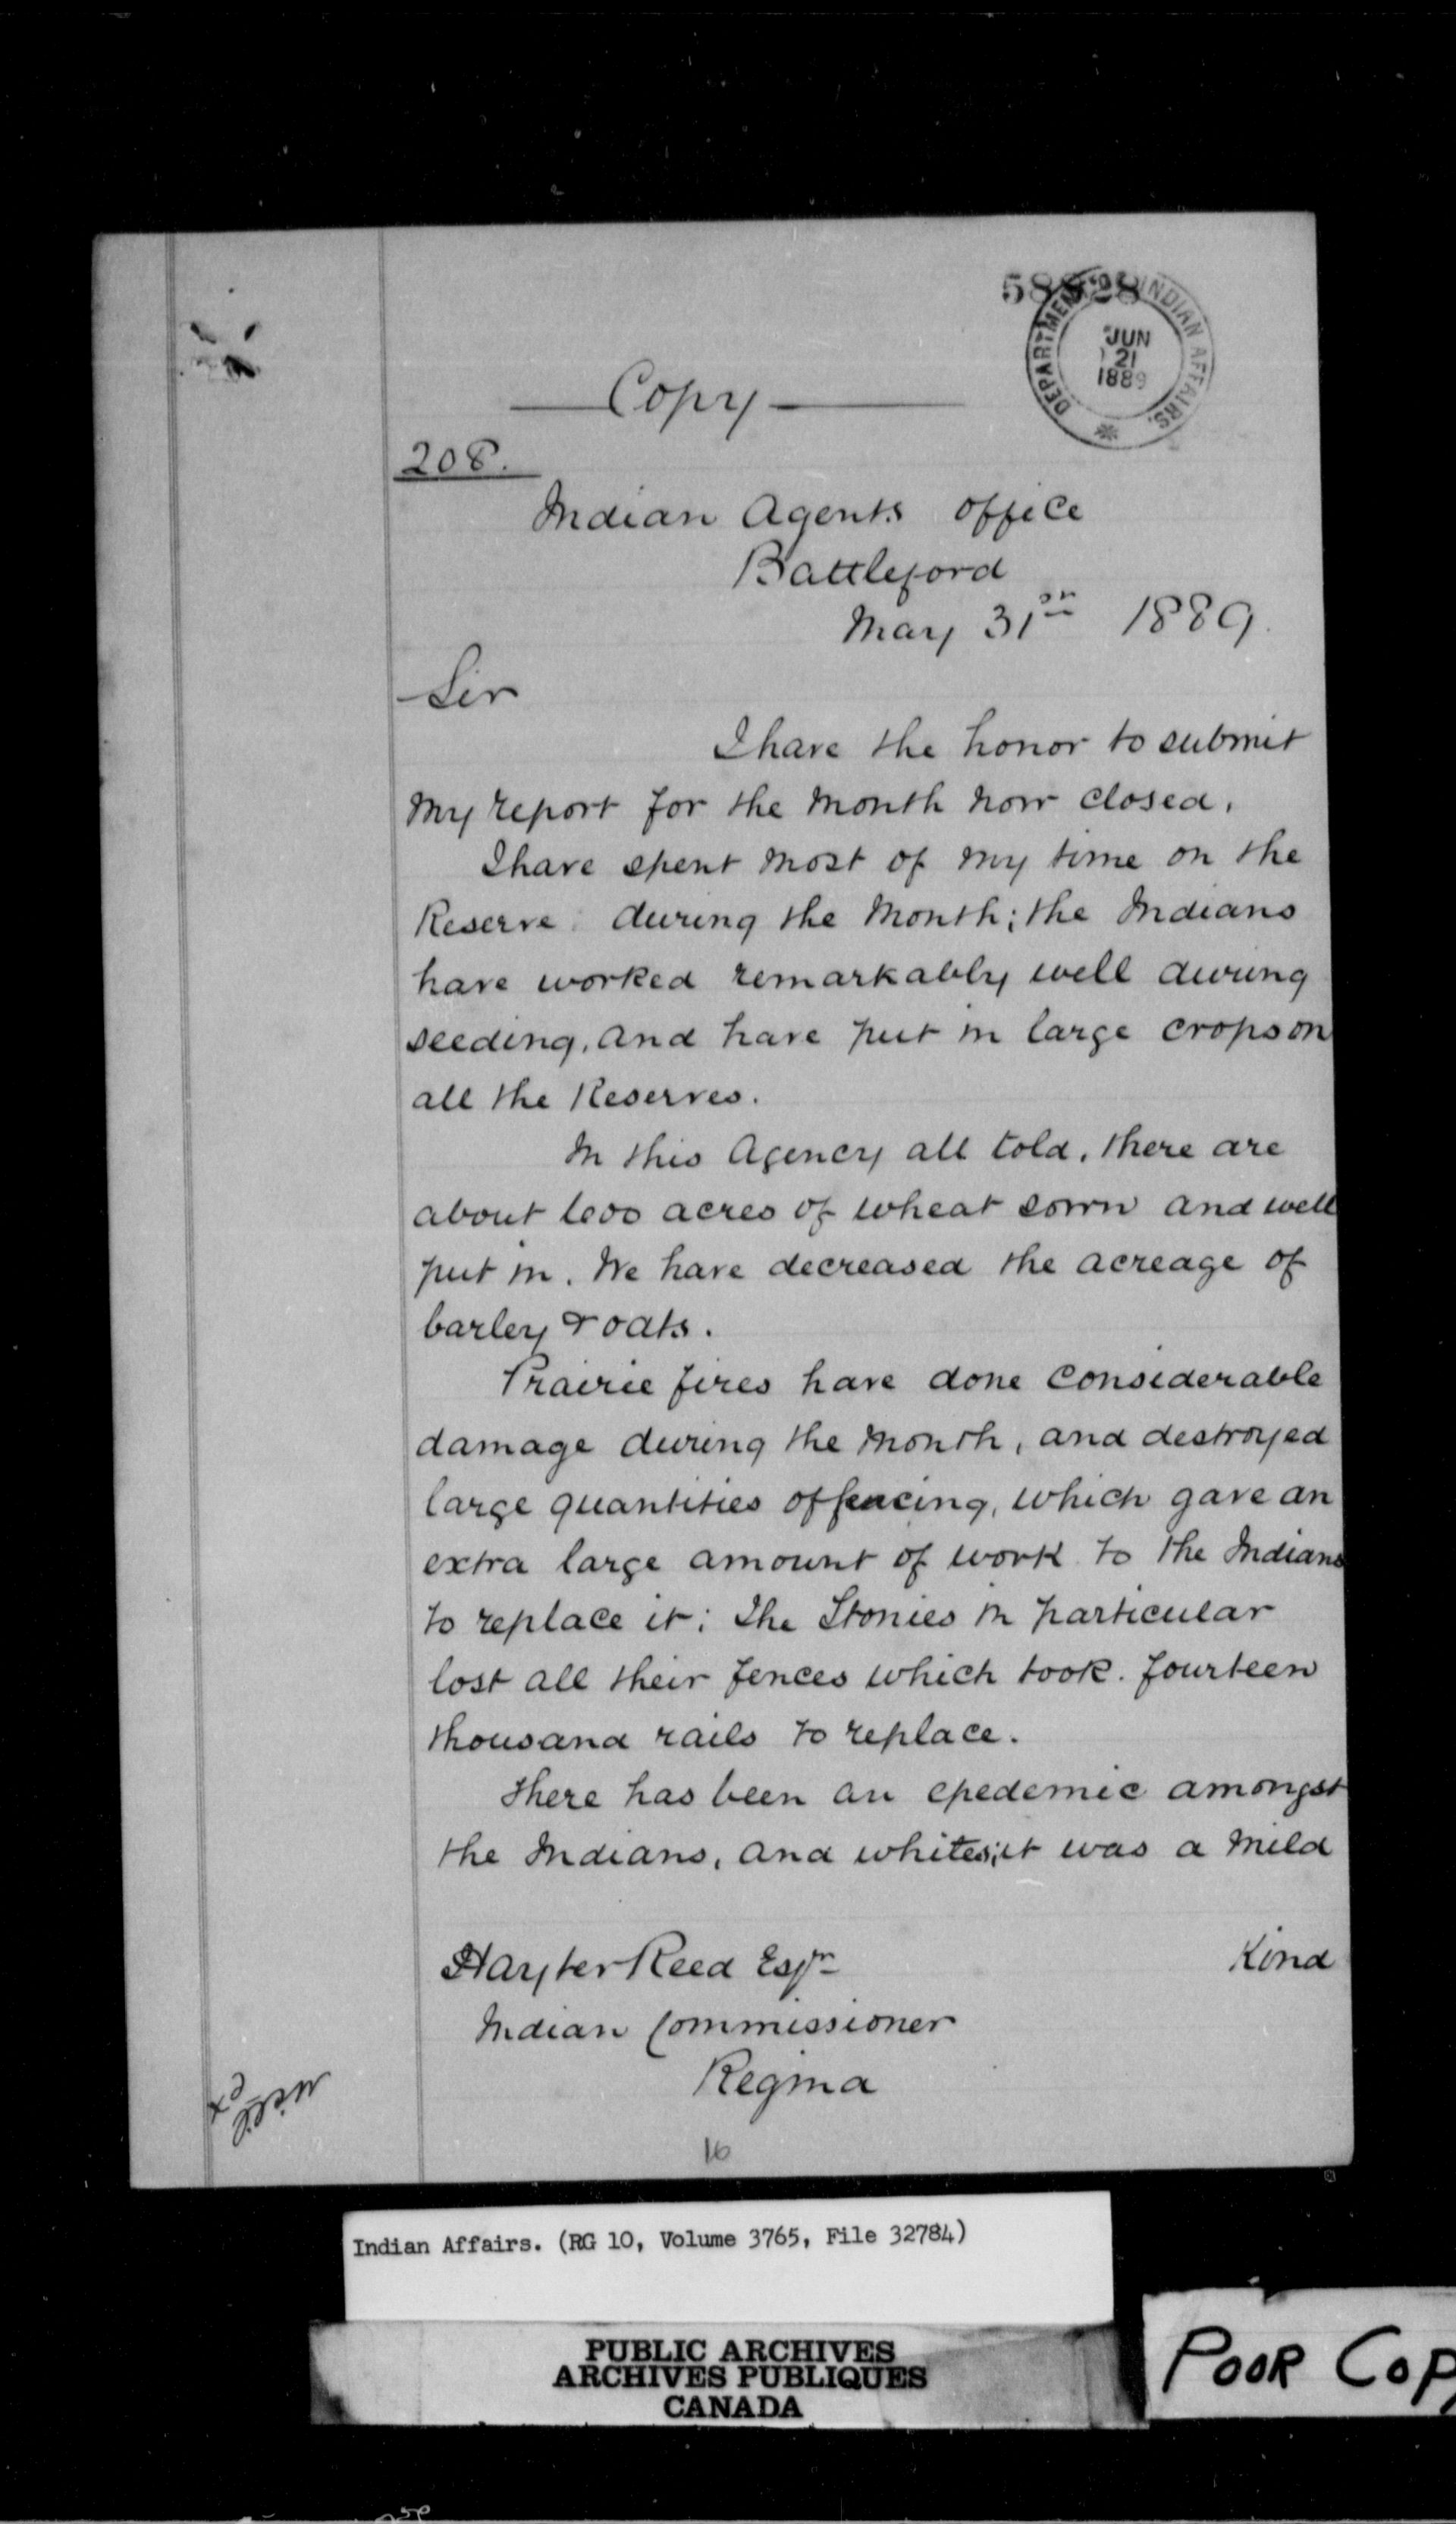 58928
DEPARTMENT OF INDIAN AFFAIRS.
JUN
21
1889
Copy
208.
Indian Agents Office
Battleford
May 31st 1889.
Sir
I have the honor to submit
my report for the month now closed.
I have spent most of my time on the
Reserve during the month; the Indians
have worked remarkably well during
seeding, and have put in large crops on
all the Reserves.
In this Agency all told, there are
about 600 acres of wheat sown and well
put in. We have decreased the acreage of
barley & oats.
Prairie fires have done considerable
damage during the month, and destroyed
large quantities of fencing, which gave an
extra large amount of work to the Indians
to replace it; The Stonies in particular
lost all their fences which took fourteen
thousand rails to replace.
There has been an epedemic amongst
the Indians, and whites; it was a mild
Kind
Hayter Reed Esqr
Indian Commissioner
Regina
16
Indian Affairs. (RG 10, Volume 3765, File 32784)
PUBLIC ARCHIVES
ARCHIVES PUBLIQUES
CANADA
POOR COPY